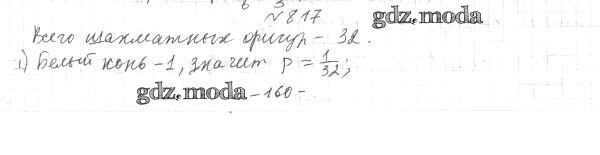 № 817
gdz.moda
Всего шахматных фигур - 32.
1) Белый конь - 1, значит p = 1/32;
gdz.moda - 160 -